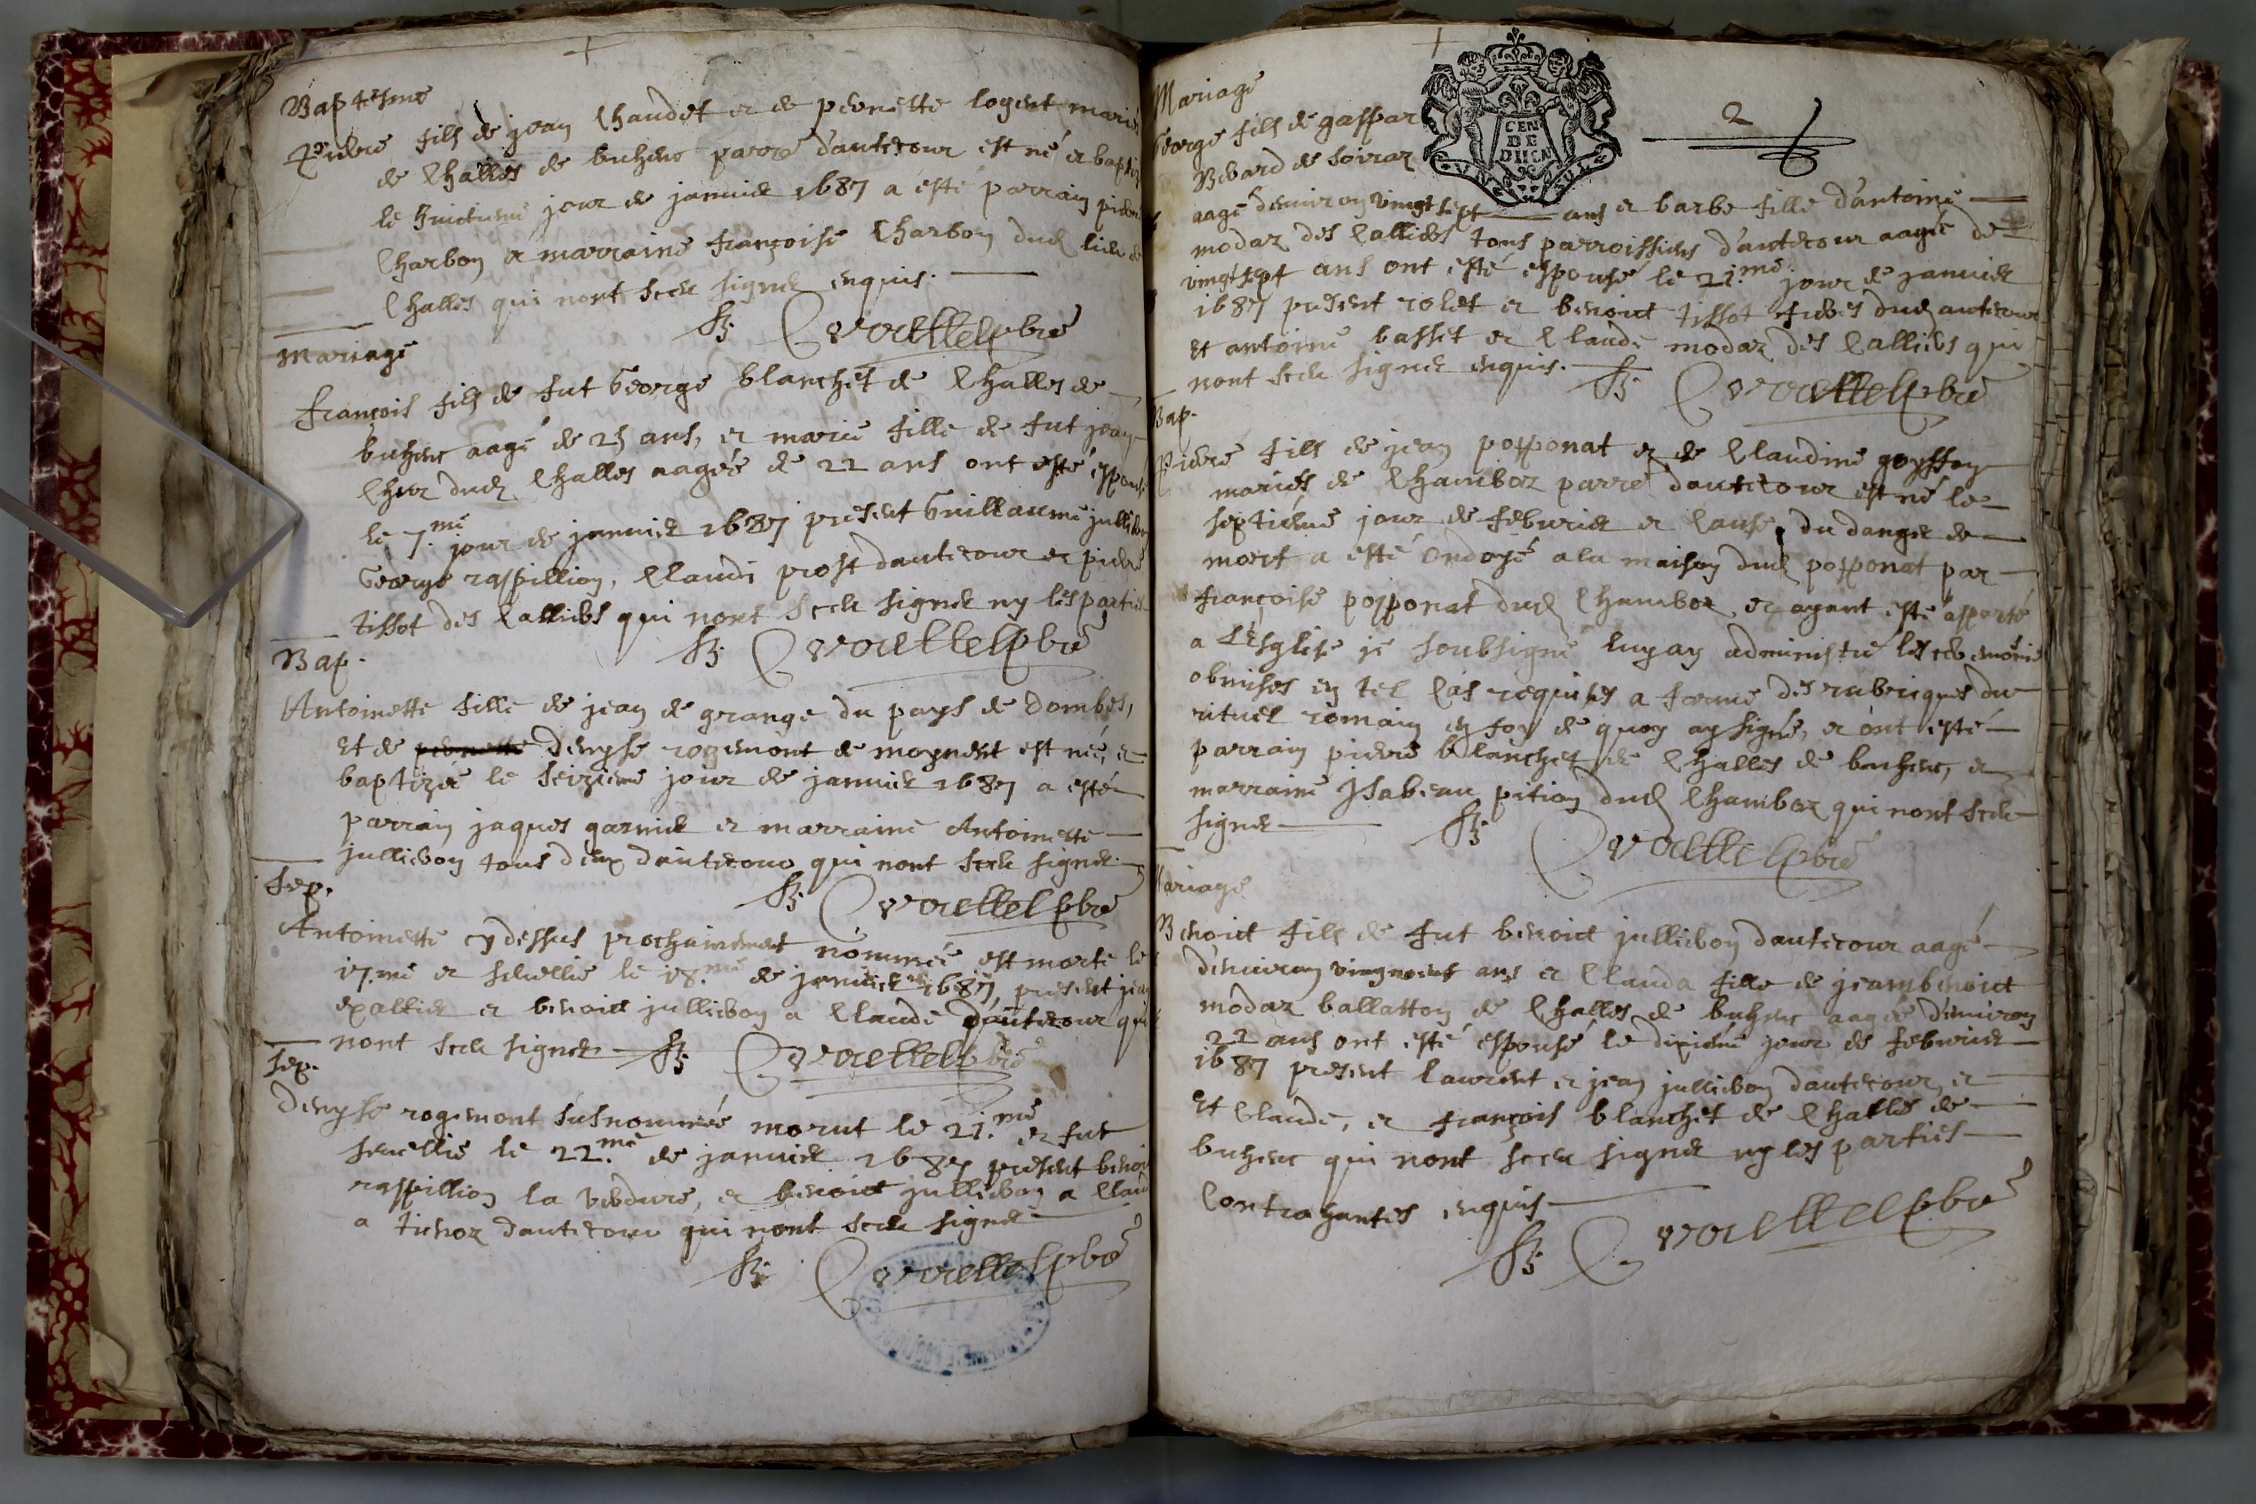 Baptesme
Pierre fils de jean Chaudet et de pernette logent mariés
de Challes de buhenc parre d'autecour est né et baptizé
le huictieme jour de janvier 1687 a esté parrain pierre
Charbon et marraine françoise Charbon dud lieu de
Challes qui nont sceu signer enquis.
Mariage
françois fils de fut George blanchet de Challes de
buhenc aagé de 25 ans, et marie fille de fut jean
dud Challes aagée de 22 ans ont esté espousé
le 7.me jour de janvier 1687 present Guillaume jullieron
George raspillion, Claude prost dautecour et pierre
tissot des Calliers qui nont sceu signer ny les parties
Bap.
Antoinette fille de jean de grange du pays de dombes,
Et de denyse rogemont de mognent est née, et
baptizée le seizieme jour de janvier 1687 a esté
parrain jaques garnier et marraine Antoinette
jullieron tous deux dautecour qui nont sceu signer
Sep.
Antoinette cydessus prochainement nommée est morte le
17.me et sevellie le 18.me de janvier 1687 present jean
et benoict jullieron a Claude dautecour qui
nont sceu signer
Sep.
Denyse rogemont susnommée morut le 21.me et fut
sevellie le 22.me de janvier 1687 present benoict
raspillion la verdure, et benoict jullieron a Claude
a dautecour qui nont sceu signer
2
CEN
DE
DUCN
Mariage
George fils de gaspar
Bevard de
aagé denviron vingt sept ans et barbe fille d'antoine
modaz des Calliers tous parroissiens d'autecour aagée de
vingt sept ans ont esté espousé le 21.me jour de janvier
1687 present rolet et benoict tissot freres dud autecour
Et antoine basset et Claude modaz des Calliers qui
nont sceu signer enquis.
Bap.
Pierre fils de jean posponat et de Claudine goyffon
mariés de Chamboz parre dautecour est né le
septieme jour de febvrier et cause du danger de
mort a esté ondoyé a la maison dud posponat par
françoise posponat dud Chamboz et ayant esté aporté
a L'Esglise je soubsigné luy ay administré les ceremonies
obmises en tel cas requises a forme des rubriques du
rituel romain en foy de quoy ay signé, et ont esté
parrain pierre blanchet de Challes de buhenc, et
marraine Jsabeau pition dud Chamboz qui nont sceu
signer
Mariage
Benoict fils de fut benoict jullieron dautecour aagé
denviron vingneuf ans et Clauda fille de jeambenoict
modaz ballatton de Challes de buhenc aagée d'environ
22 ans ont esté espousé le dixiéme jour de febvrier
1687 present laurent et jean jullieron dautecour et
Et Claude, et françois blanchet de Challes de
buhenc qui nont sceu signer ny les parties
Contrahantes enquis